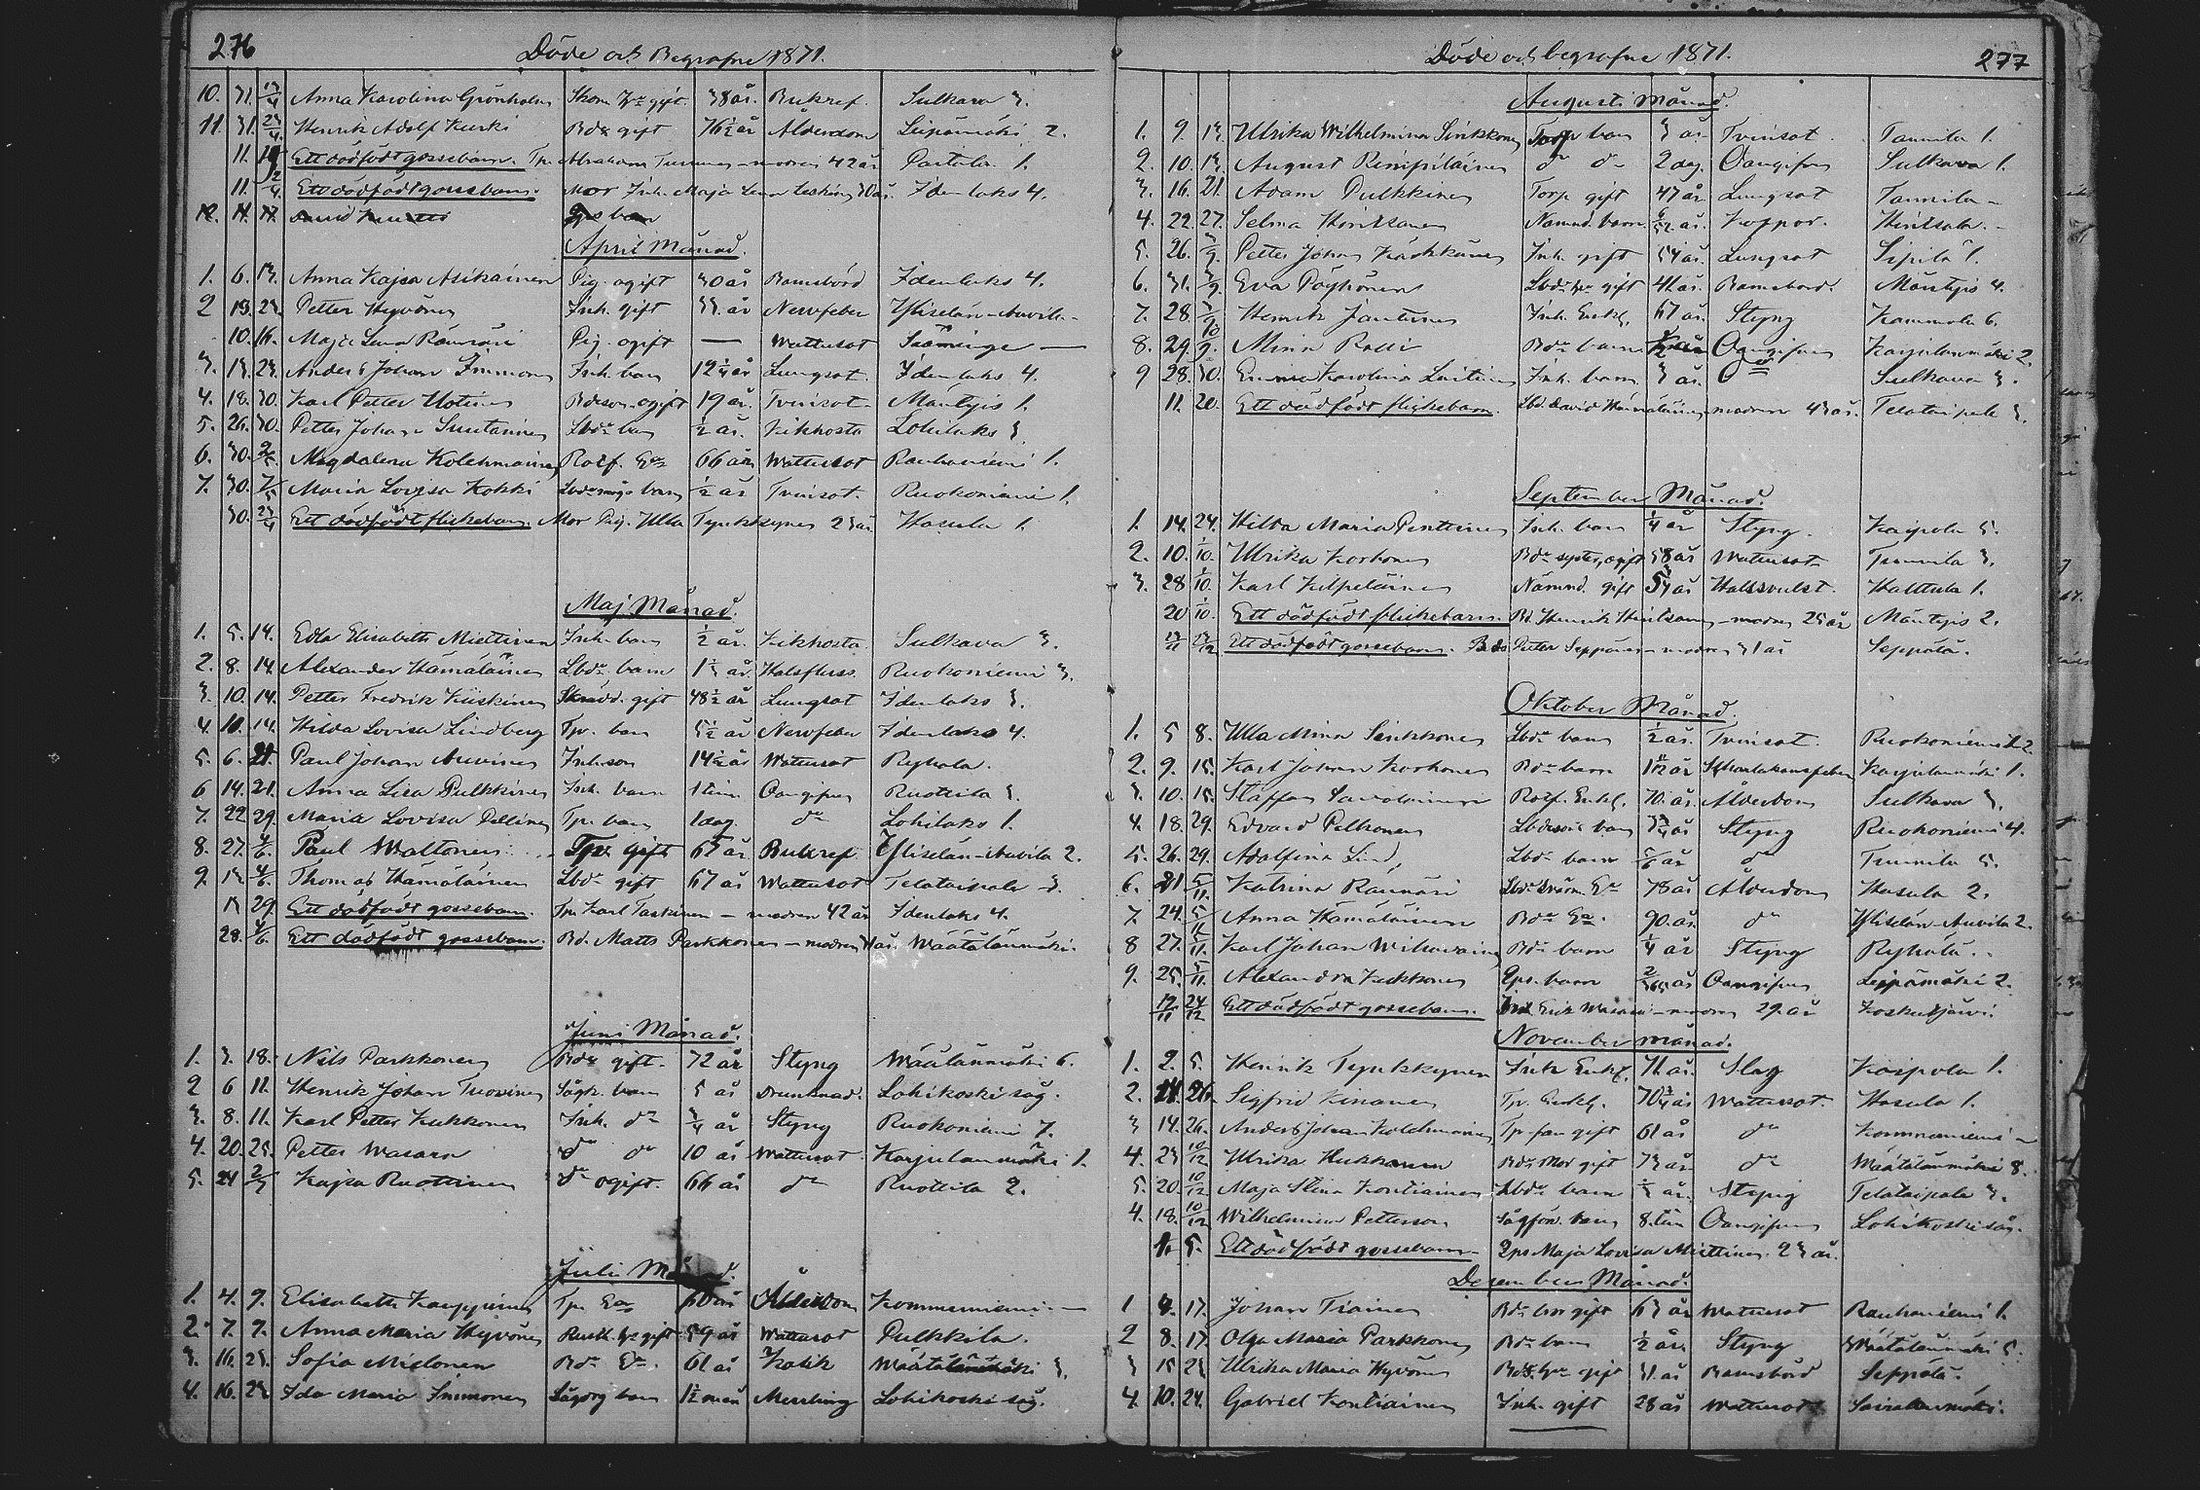 276
Döde och Begrafne 1871.
10. 31. Anna Karolina Grönholm Skom. gift. 38 år. Bukref. Sulkava 3.
11. 31. 23/4 Henrik Adolf Kurki Bde gift 76 1/2 år Ålderdom Leipämäki 2.
11. Ett dödfödt gossebarn. Tp. Abraham modren 42 år Partala 1.
11. 2/4 Ett dödfödt gossebarn. Mor Inh. Maja Lena 30 år Idenlaks 4.
12. 11. 17. barn
April Månad.
1. 6. 13. Anna Kajsa Asikainen Pig. ogift 30 år Barnsbörd Idenlaks 4.
2 13. 23. Petter Hyvönen Inh. gift 53. år Nervfeber Yliselän-Auvila
10. 16. Maja Lena Räwsäri Pig. ogift — Wattusot Sääminge —
3. 13. 23. Anders Johan Immonen Inh. barn 12 1/4 år Lungsot. Idenlaks 4.
4. 18. 30. Karl Petter Hotinen Bdeson. ogift 19 år. Tvinsot Mäntyis 1.
5. 26. 30. Petter Johan Suutarinen Lbde barn 1/2 år. Kikhosta Lohilaks 3.
6. 30. Magdalena Kolehmainen Rotf. Ea 66 år Wattusot Rauhaniemi 1.
7. 30. 7/5 Maria Lovisa Kokki Lbdemågs barn 1/2 år Tvinsot. Ruokoniemi 1.
30. 23/4 Ett dödfödt flickebarn. Mor Pig. Ulla Tynkkynen 23 år Hasula 1.
Maj Månad.
1. 5. 14. Edla Elisabeth Miettinen Inh. barn 1/2 år. Kikhosta. Sulkava 3.
2. 8. 14. Alexander Hämäläinen Lbde barn Halsfluss. Ruokoniemi 3.
3. 10. 14. Petter Fredrik Kiiskinen Skrädd. gift 48 1/2 år Lungsot Idenlaks 3.
4. 10. 14. Hilda Lovisa Lindberg Tpr. barn 5 1/2 år Nervfeber Idenlaks 4.
5. 6. 21. Paul Johan Auvinen Inh. son 14 1/2 år Wattusot Ryhälä.
6 14. 21. Anna Lisa Pulkkinen Inh. barn 1 tim. Oangifven Ruottila 3.
7. 22 29. Maria Lovisa Pellinen Tpr. barn 1 dag. do Lohilaks 1.
8. 27. 4/6. Paul Waltonen Tpr. gift 67 år Bukref Yliselän-Auvila 2.
9. 13 4/6. Thomas Hämäläinen Lbde gift 67 år Wattusot Telataipale 3.
13 29. Ett dödfödt gossebarn. Tpr Karl Taskinen — modren 42 år Idenlaks 4.
28. 4/6. Ett dödfödt gossebarn. Bd. Matts Parkkonen — modren år. Määtälänmäki
Juni Månad.
1. 3. 18. Nils Parkkonen Bde gift. 72 år Styng Määtälänmäki 6.
2 6 11. Henrik Johan Tuovinen Sågk. barn 5 år Drunknad. Lohikoski såg.
3. 8. 11. Karl Petter Kukkonen Inh. do 3/4 år Styng Ruokoniemi 7.
4. 20. 25. Petter Wasara do do 10 år Wattusot. Karjulanmäki 1.
5. 24 2/7 Kajsa Ruottinen do ogift. 66 år do Ruottila 2.
Juli Månad.
1. 4. 9. Elisabeth Kauppinen Tpr. Ea 60 år Ålderdom Kommerniemi —
2. 7. 9. Anna Maria Hyvönen gift 59 år Wattusot Pulkkila.
3. 16. 23. Sofia Mielonen Bde Ea. 61 år Kolik Määtälänmäki 3.
4. 16. 23. Ida Maria Immonen barn 1 1/2 mån Messling Lohikoski såg.
Döde och begrafne 1871.
277
Augusti Månad.
1. 9. 13. Ulrika Wilhelmina Sinkkonen Torp barn 3 år. Tvinsot Tannila 1.
2. 10. 13. August Rimpiläinen do do 2 dag. Oangifven Sulkava 1.
3. 16. 21. Adam Pulkkinen Torp gift 47 år Lungsot Tannila —
4. 22. 27. Selma Hirvitsanen Nämnd. barn Koppor.
5. 26. 3/9. Petter Johan Kärkkänen Inh. gift 54 år. Lungsot Sipilä 1.
6. 31. 3/9. Eva Pöyhönen Lbde gift 42 år. Barnsbörd. Mäntyis 4.
7. 28. Henrik Jantunen Inh. Enkl. 67 år. Styng Kammola 6.
8. 29. Minna Bde barn Oangifven Karjulanmäki 2.
9 28. 30. Karolina Laitinen Inh. barn 3 år. do Sulkava 3.
11. 20. Ett dödfödt flickebarn. Lbd. David Hämäläinen modren 43 år. Telataipale 3.
September Månad.
1. 14. 24. Hilda Maria Penttinen Inh. barn 1/4 år Styng. Kaipola 5.
2. 10. 1/10. Ulrika Korhonen Bde syster, ogift 58 år Wattusot Tunnila 3.
3. 28 1/10. Karl Kilpeläinen Nämnd. gift 53 år Halssvulst. Halttula 1.
20 1/10. Ett dödfödt flickebarn. Bd. Henrik — modren 25 år Mäntyis 2.
Ett dödfödt gossebarn. Bde Petter Seppänen — modren 31 år Seppälä.
Oktober Månad.
1. 5 8. Ulla Mina Sinkkonen Lbde barn 1/2 år. Tvinsot. Ruokoniemi 2
2. 9. 15. Karl Johan Korhonen Bde barn Scharlakansfeber Karjulanmäki 1.
3. 10. 15. Staffan Savolainen Rotf. Enkl. 70. år. Ålderdom Sulkava 3.
4. 18. 29. Edvard Pelkonen barn Styng Ruokoniemi 4.
5. 26. 29. Adolfina Lind, Lbde barn 5/6 år do Tunnila 5.
6. 21 5/11. Katrina Räisänen Ea 78 år Ålderdom Hasula 2.
7. 24. 5/11 Anna Hämäläinen Bde Ea. 90. år. do Ylisälän-Auvila 2.
8 27. 5/11. Karl Johan Bde barn 1/4 år Styng Ryhälä.
9. 25. 5/11. Alexandra Kukkonen Eps. barn 2/365 år Oangifven Leipämäki 2.
12/11 24/12 Ett dödfödt gossebarn. Inh Erik Wasara — modren 29 år Koskutjärvi
November månad.
1. 2. 5. Henrik Tynkkynen Inh Enkl. 71 år. Slag Kaipola 1.
2. 14. 26. Sigfrid Kinanen Tp. Enkl. 70 3/4 år Wattusot. Hasula 1.
3 14. 26. Anders Johan Kolehmainen Tp. far gift 61 år do Kommerniemi —
4. 23 10/12 Ulrika Hukkanen Bde Mor gift 73 år do Määtälänmäki 8.
5. 20. 10/12 Maja Stina Kontiainen Lbde barn Styng Telataipale 3.
4. 18. 10/12 Wilhelmina Petterson Sågför. barn 8. tim Oangifven Lohikoski såg.
1. 5. Ett dödfödt gossebarn Eps Maja Lovisa Miettinen. 23 år.
December Månad.
1 3. 17. Johan Tiainen Bde bror gift 63 år Wattusot Rauhaniemi 1.
2 8. 17. Olga Maria Parkkonen Bde barn 1/2 år Styng Määtälänmäki 5.
3 15 23 Ulrika Maria Hyvönen gift 31. år Barnsbörd Seppälä.
4. 10. 24. Gabriel Kontiainen Inh. gift 28 år Wattusot